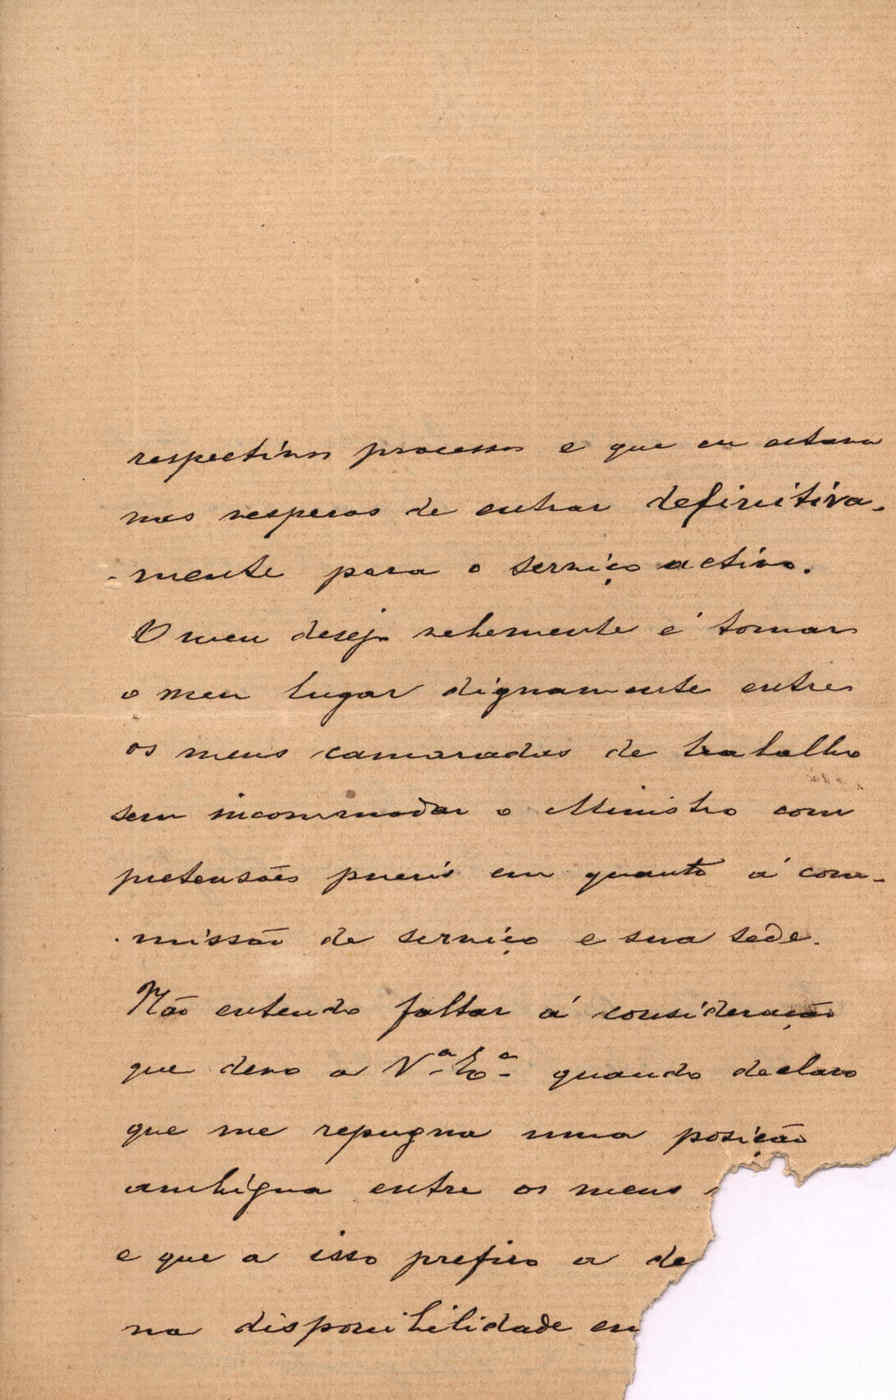 respectivos processos e que eu estava
nas vesperas de entrar definitiva-
-mente para o serviço activo.
O meu desejo vehemente é tomar
o meu lugar dignamente entre
os meus camaradas de trabalho
sem incommodar o Ministro com
pretensões pueris em quanto á com-
-missão de serviço e sua sede.
Não entendo faltar á consideração
que devo a V.ª Ex.ª quando declaro
que me repugna uma posição
ambigua entre os meus
e que a isso prefiro a de
na disponibilidade em